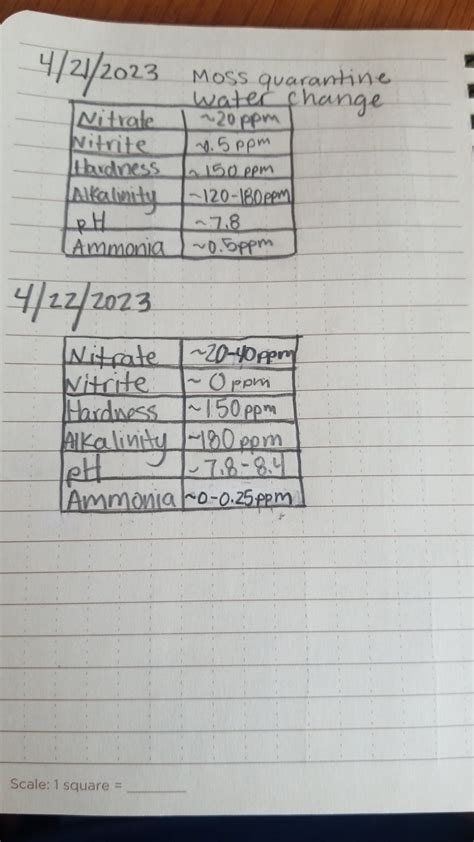 4/21/2023 Moss quarantine
water change
Nitrate ~20 ppm
Nitrite ~0.5 ppm
Hardness ~150 ppm
Alkalinity ~120-180ppm
pH ~7.8
Ammonia ~0.5ppm
4/22/2023
Nitrate ~20-40ppm
Nitrite ~0 ppm
Hardness ~150 ppm
Alkalinity ~180 ppm
pH ~7.8-8.4
Ammonia ~0-0.25ppm
Scale: 1 square = ______